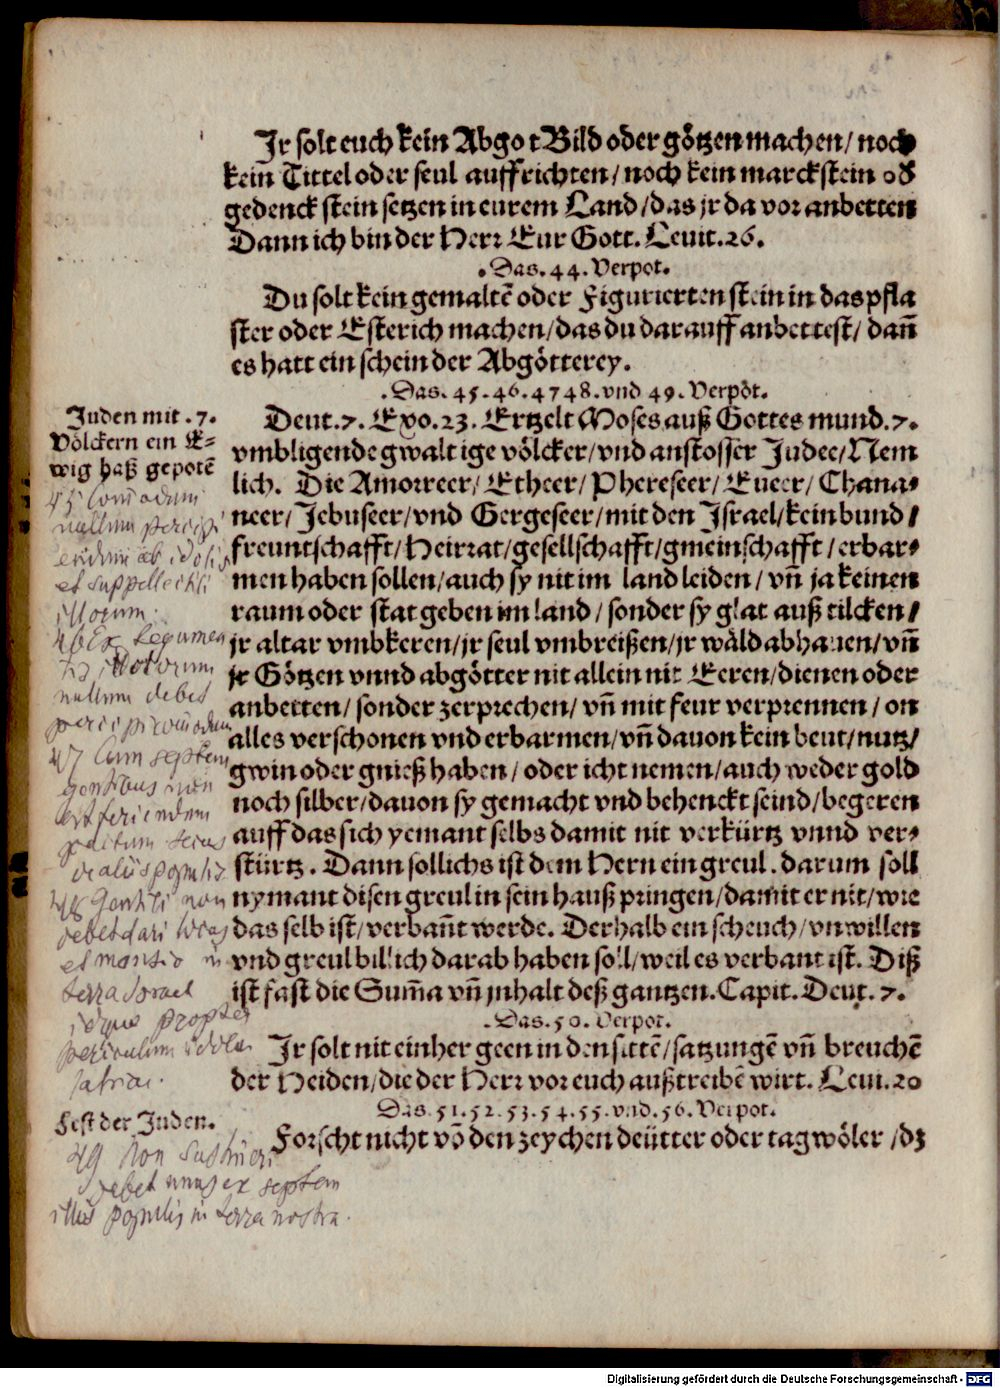 Jr solt euch kein Abgot Bild oder götzen machen/ noch
kein Tittel oder seul auffrichten/ noch kein marckstein od
gedenck stein setzen in eurem Land/ das jr da vor anbetten
Dann ich bin der Herr Eur Gott. Levit. 26.
.Das. 44. Verpot.
Du solt kein gemaltē oder Figurierten stein in das pfla
ster oder Esterich machen/ das du darauff anbettest/ dañ
es hatt ein schein der Abgötterey.
.Das. 45. 46. 47 48. vnd 49. Verpot.
Juden mit .7.
Völckern ein E=
wig haß gepotē
Deut. 7. Exo. 23. Ertzelt Moses auß Gottes mund. 7.
vmbligende gwaltige völcker/ vnd anstosser Judee/ Nem
lich. Die Amorreer/ Etheer/ Phereseer/ Eueer/ Chana=
neer/ Jebuseer/ vnd Gergeseer/ mit den Israel/ kein bund/
freuntschafft/ Heirrat/ gesellschafft/ gmeinschafft/ erbar=
men haben sollen/ auch sy nit im land leiden/ vñ ja keinen
raum oder stat geben im land/ sonder sy glat auß tilcken/
jr altar vmbkeren/ jr seul vmbreißen/ jr wäld abhauen/ vñ
jr Götzen vnnd abgötter nit allein nit Eeren/ dienen oder
anbetten/ sonder zerprechen/ vñ mit feur verprennen/ on
alles verschonen vnd erbarmen/ vñ dauon kein beut/ nutz/
gwin oder gnieß haben/ oder icht nemen/ auch weder gold
noch silber/ dauon sy gemacht vnd behenckt seind/ begeren
auff das sich yemant selbs damit nit verkürtz vnnd ver=
stürtz. Dann sollichs ist dem Hern ein greul. darum soll
nymant disen greul in sein hauß pringen/ damit er nit/ wie
das selb ist/ verbañt werde. Derhalb ein scheuch/ vnwillen
vnd greul billich darab haben soll/ weil es verbant ist. Diß
ist fast die Sum̄a vñ jnhalt deß gantzen. Capit. Deut. 7.
45 Com̄odum
nullum percipi
endum ab idolis
et suppellectili
illorum.
46 Ex Legumen
nullum debet
percipi com̄odum
47 Cum septem
gentibus non
est feriendum
48 Gentili non
debet dari locus
et mansio in
terra Israel
idque propter
periculum idola
latriae.
.Das. 50. Verpot.
Jr solt nit einher geen in den sittē/ satzungē vñ breuchē
der Heiden/ die der Herr vor euch außtreibē wirt. Levi. 20
Das. 51. 52. 53. 54. 55. vnd. 56. Verpot.
Fest der Juden.
Forscht nicht vō den zeychen deütter oder tagwöler/ dz
49 Non sustineri
debet unus ex septem
illis populis in terra nostra.
Digitalisierung gefördert durch die Deutsche Forschungsgemeinschaft - DFG